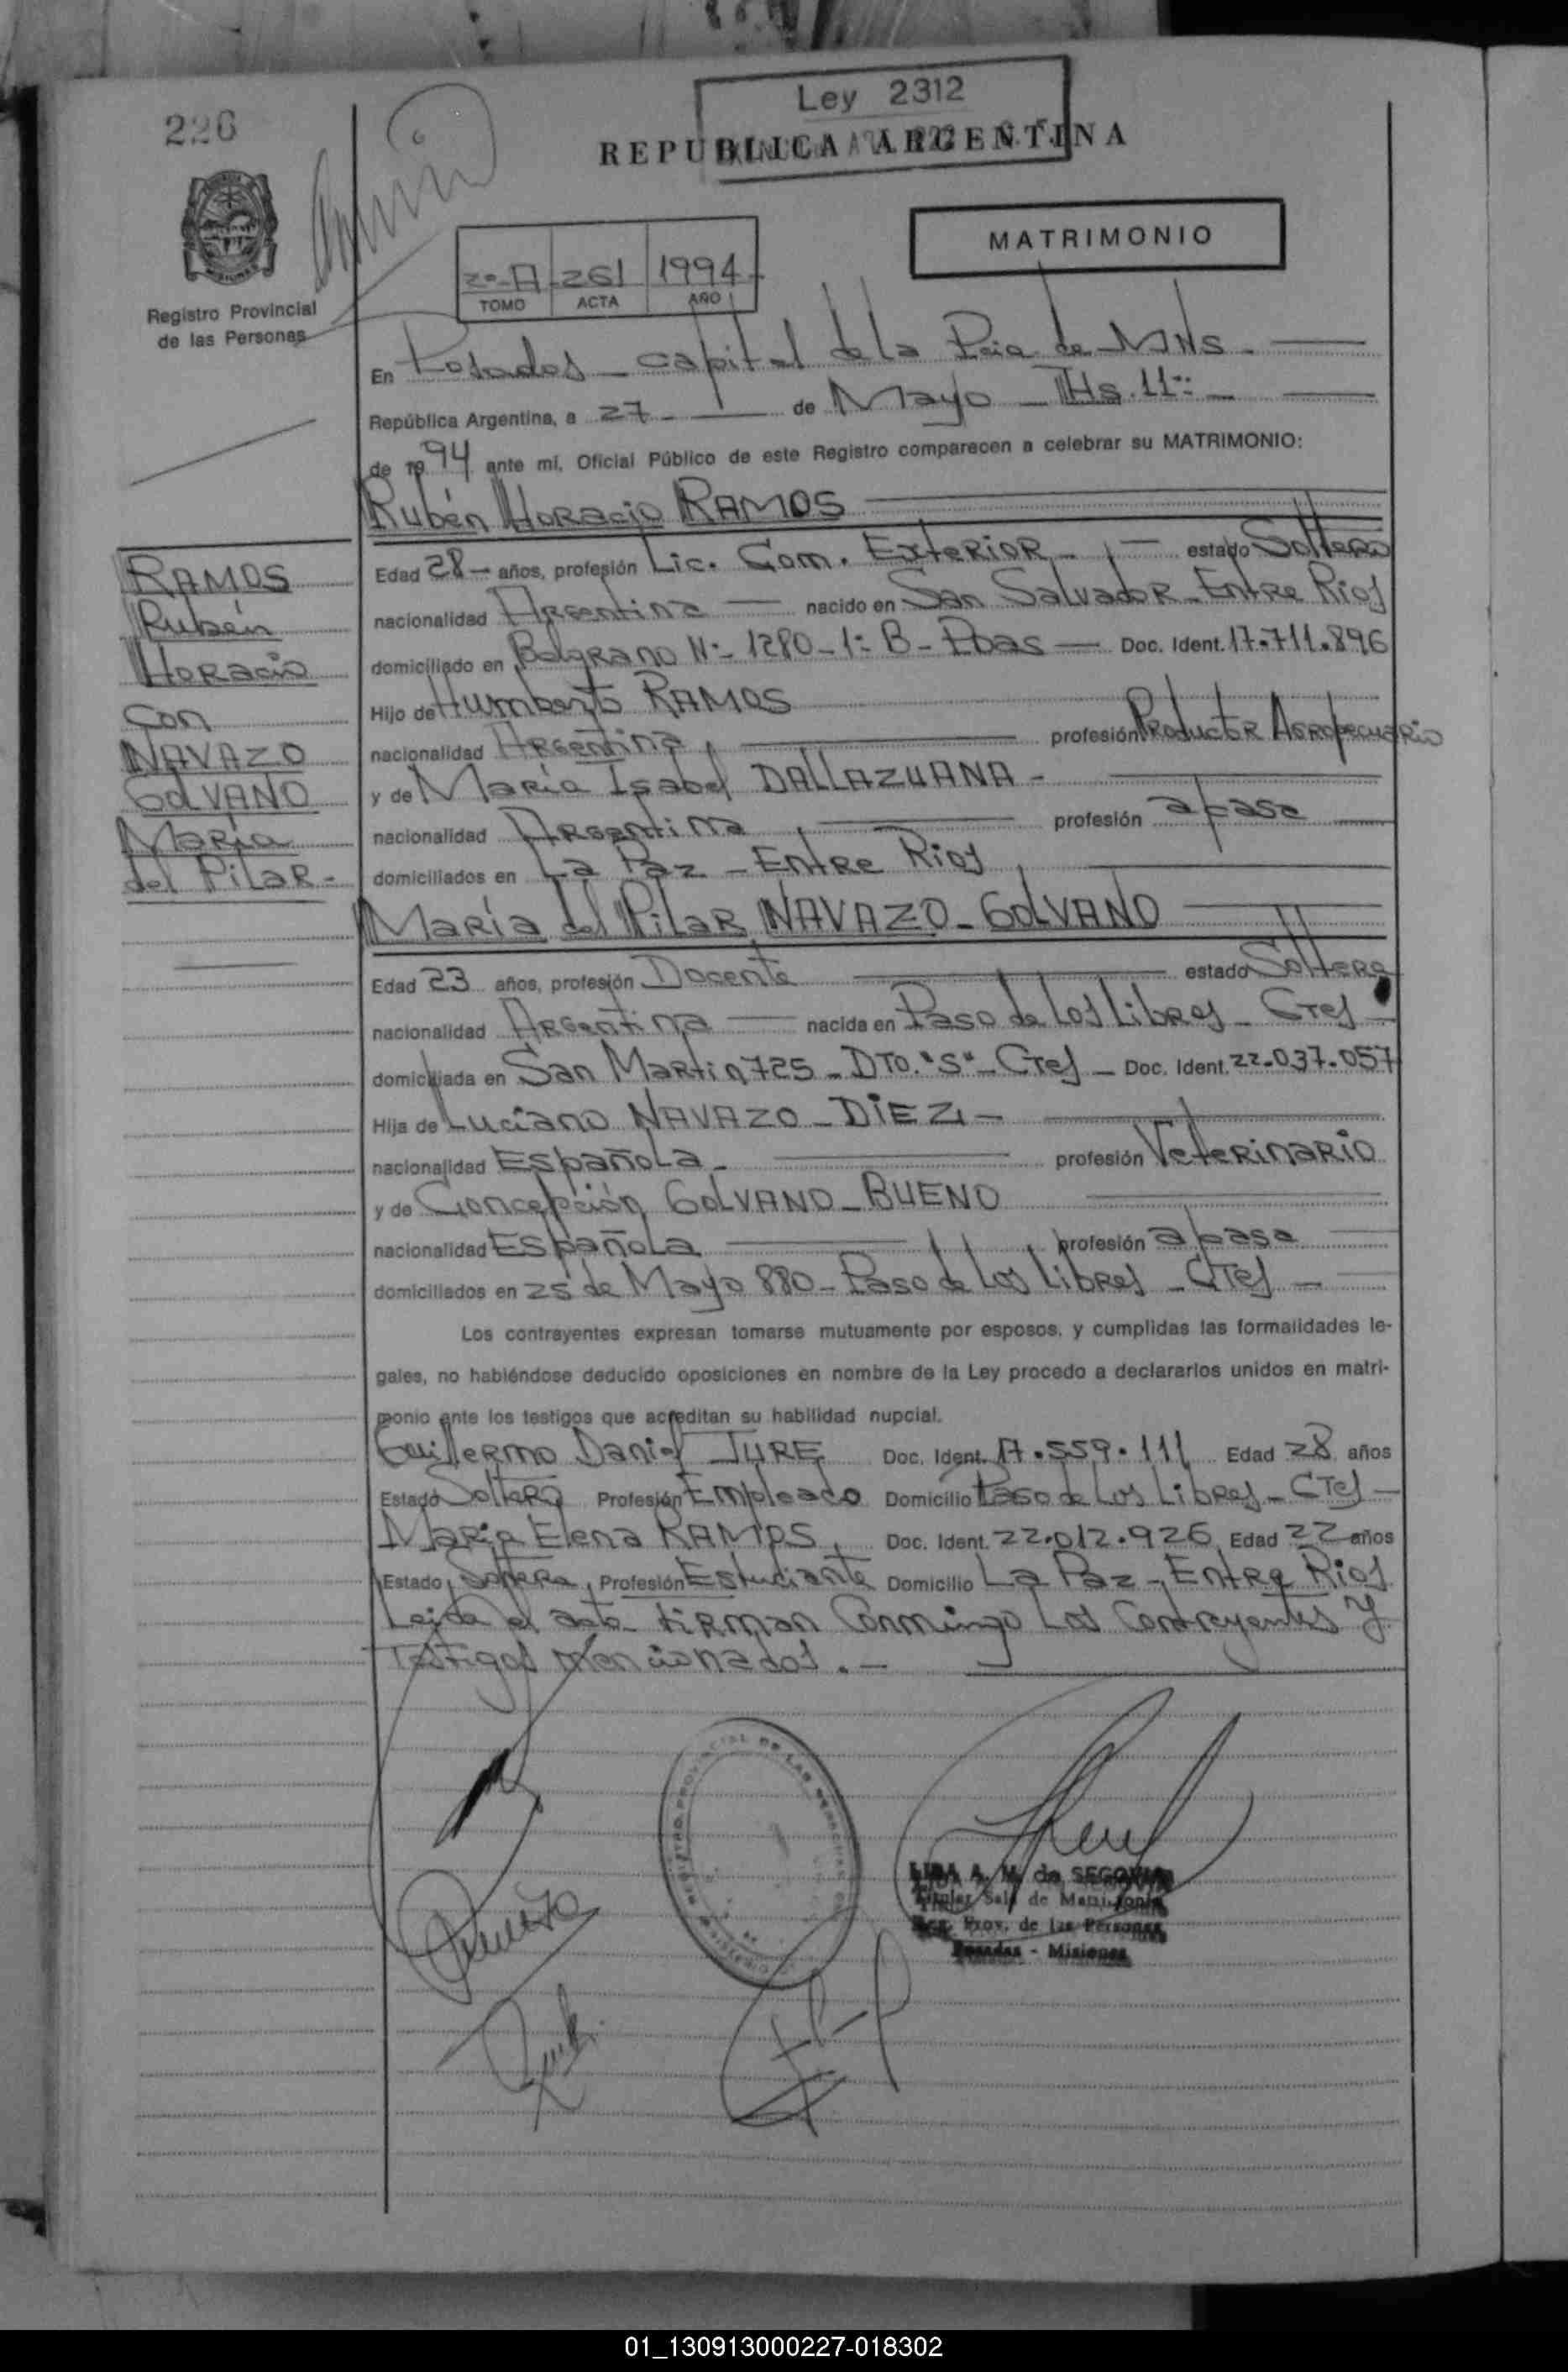 226
Ley 2312
REPUBLICA ARGENTINA
MATRIMONIO
2º-A 261 1994
TOMO ACTA AÑO
Registro Provincial
de las Personas
En Posadas - capital de la Pcia de MNS.-
República Argentina, a 27- de Mayo - Hs. 11:-
de 1994 ante mí, Oficial Público de este Registro comparecen a celebrar su MATRIMONIO:
Rubén Horacio RAMOS
Edad 28- años, profesión Lic. Com. Exterior - estado Soltero
nacionalidad Argentina - nacido en San Salvador - Entre Rios
domiciliado en Belgrano Nº- 1280-1º B - Pdas - Doc. Ident. 17.711.896
Hijo de Humberto RAMOS
nacionalidad Argentina, profesión Productor Agropecuario
y de María Isabel DALLAZUANA -
nacionalidad Argentina, profesión a/casa
domiciliados en La Paz - Entre Rios
María del Pilar NAVAZO - GOLVANO
Edad 23 años, profesión Docente estado Soltera
nacionalidad Argentina - nacida en Paso de Los Libres - Ctes -
domiciliada en San Martin 725 - DTO. "S" - Ctes - Doc. Ident. 22.037.057
Hija de Luciano NAVAZO - DIEZ -
nacionalidad Española - profesión Veterinario
y de Concepción GOLVANO - BUENO
nacionalidad Española profesión a/casa
domiciliados en 25 de Mayo 880 - Paso de Los Libres - Ctes -
Los contrayentes expresan tomarse mutuamente por esposos, y cumplidas las formalidades le-
gales, no habiéndose deducido oposiciones en nombre de la Ley procedo a declararlos unidos en matri-
monio ante los testigos que acreditan su habilidad nupcial.
Guillermo Daniel JURE Doc. Ident. 17.559.111 Edad 28 años
Estado Soltero Profesión Empleado Domicilio Paso de Los Libres - CTes -
María Elena RAMOS, Doc. Ident. 22.012.926 Edad 22 años
Estado Soltera, Profesión Estudiante Domicilio La Paz - Entre Rios
Leida el acta firman Conmingo Los Contrayentes y
Testigos mencionados.-
RAMOS
Rubén
Horacio
Con
NAVAZO
GOLVANO
María
del Pilar -
REGISTRO PROVINCIAL DE LAS PERSONAS
A. M. de SEGOVIA
Titular Sala de Matrimonio
Reg. Prov. de las Personas
Posadas - Misiones
01_130913000227-018302